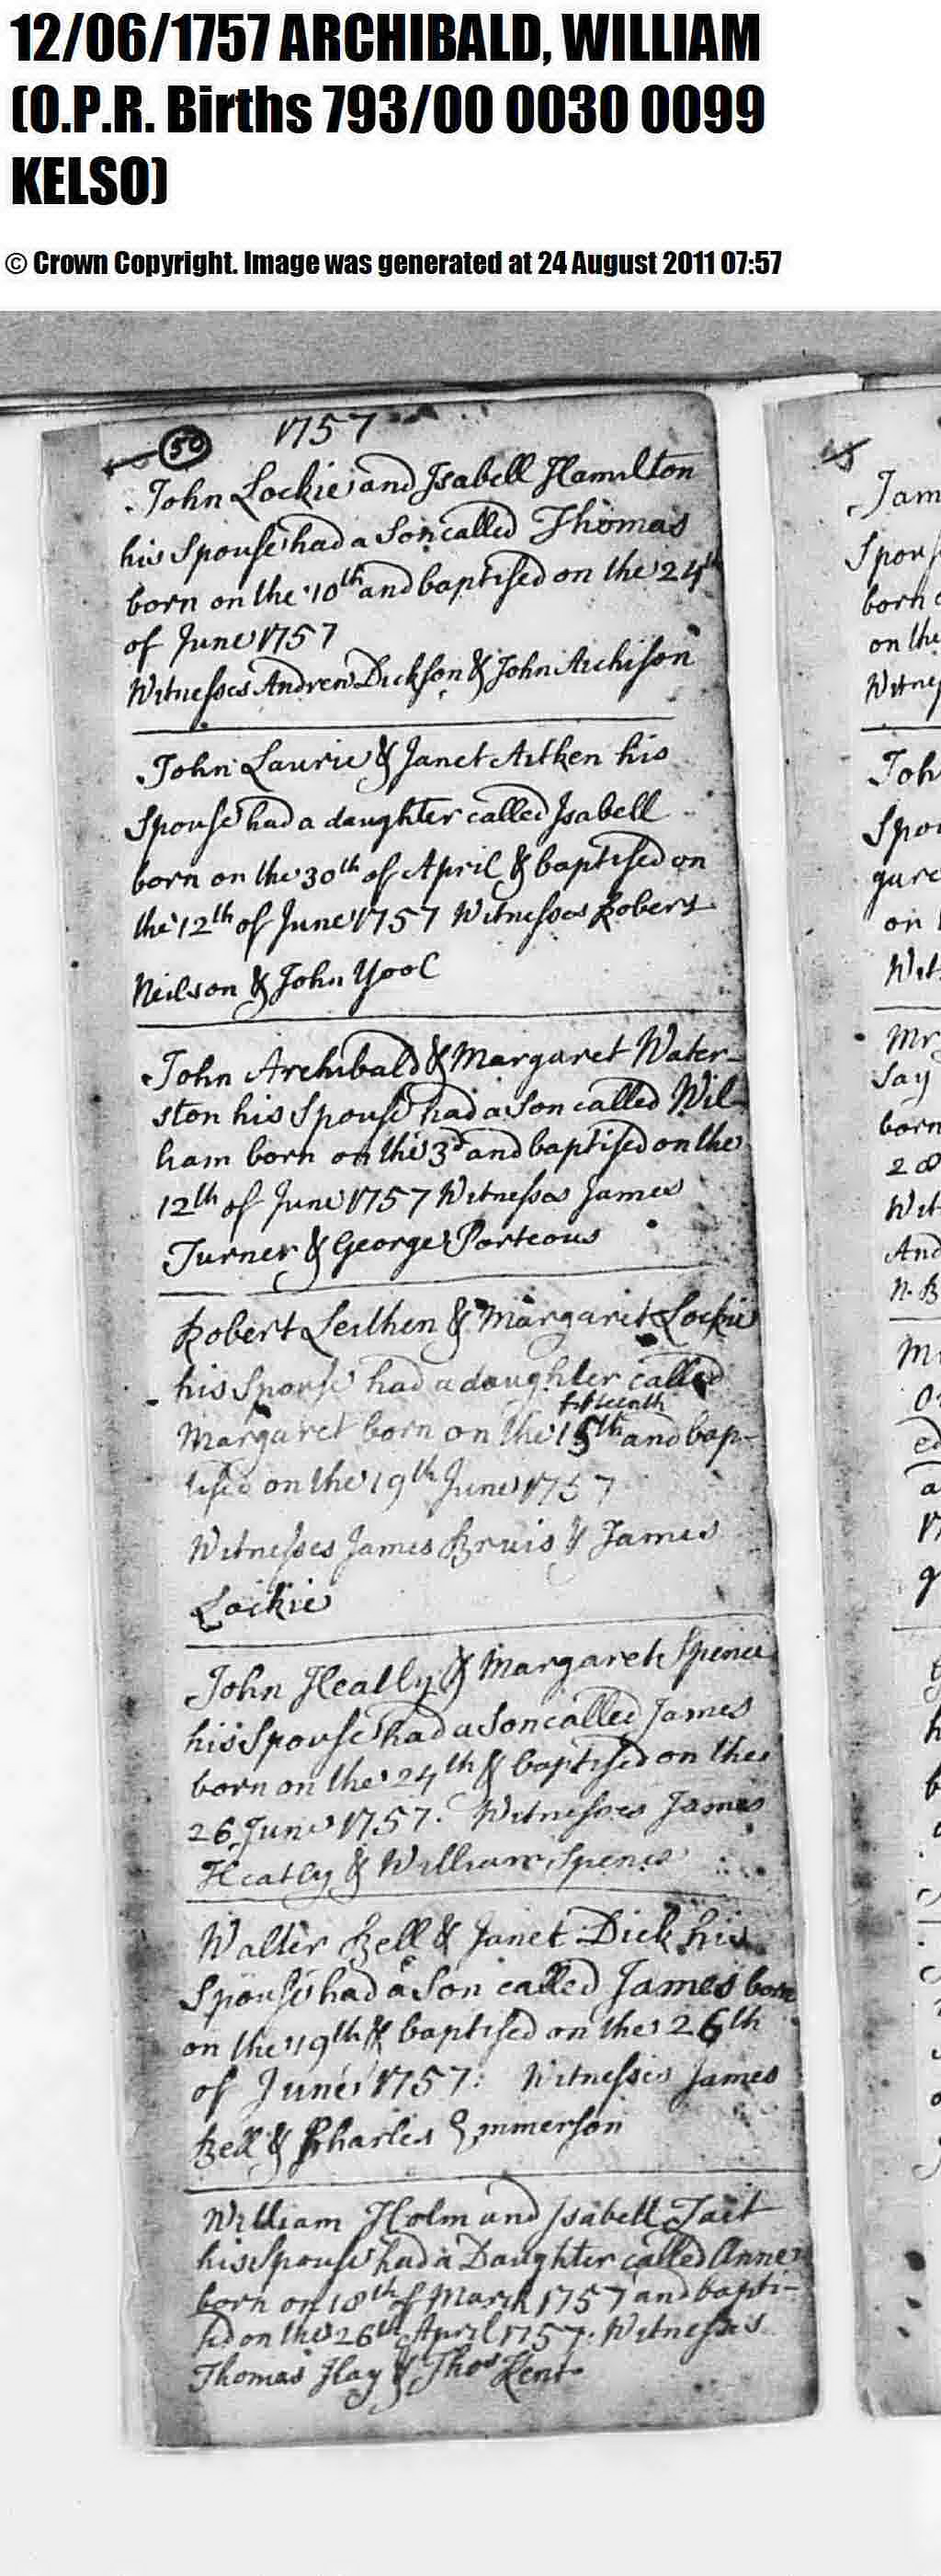 12/06/1757 ARCHIBALD, WILLIAM
(O.P.R. Births 793/00 0030 0099
KELSO)
© Crown Copyright. Image was generated at 24 August 2011 07:57
50 1757
John Lockie and Isabell Hamilton
his Spouse had a Son called Thomas
born on the 10th and baptised on the 24th
of June 1757
Witnesses Andrew Dickson & John Aichison
John Laurie & Janet Aitken his
Spouse had a daughter called Isabell
born on the 30th of April & baptised on
the 12th of June 1757 Witnesses Robert
Neilson & John Yool
John Archibald & Margaret Water-
ston his Spouse had a Son called Wil-
liam born on the 3d and baptised on the
12th of June 1757 Witnesses James
Turner & George Porteous
Robert Leithen & Margaret Lockie
his Spouse had a daughter called
fifteenth
Margaret born on the 15th and bap-
tised on the 19th June 1757
Witnesses James Bruis & James
Lockie
John Heatly & Margaret Spence
his Spouse had a Son called James
born on the 24th & baptised on the
26 June 1757. Witnesses James
Heatly & William Spence
Walter Bell & Janet Dick his
Spouse had a Son called James born
on the 19th & baptised on the 26th
of June 1757: Witnesses James
Bell & Charles Emmerson
William Holm and Isabell Tait
his Spouse had a Daughter called Anne
born on 18th of March 1757 and bapti-
sed on the 26th April 1757. Witnesses
Thomas Hay & Thos Kent
Jam
Spous
born
on the
Witnes
Joh
Spou
on
Wit
Mr
say
born
28
Wit
And
N. B